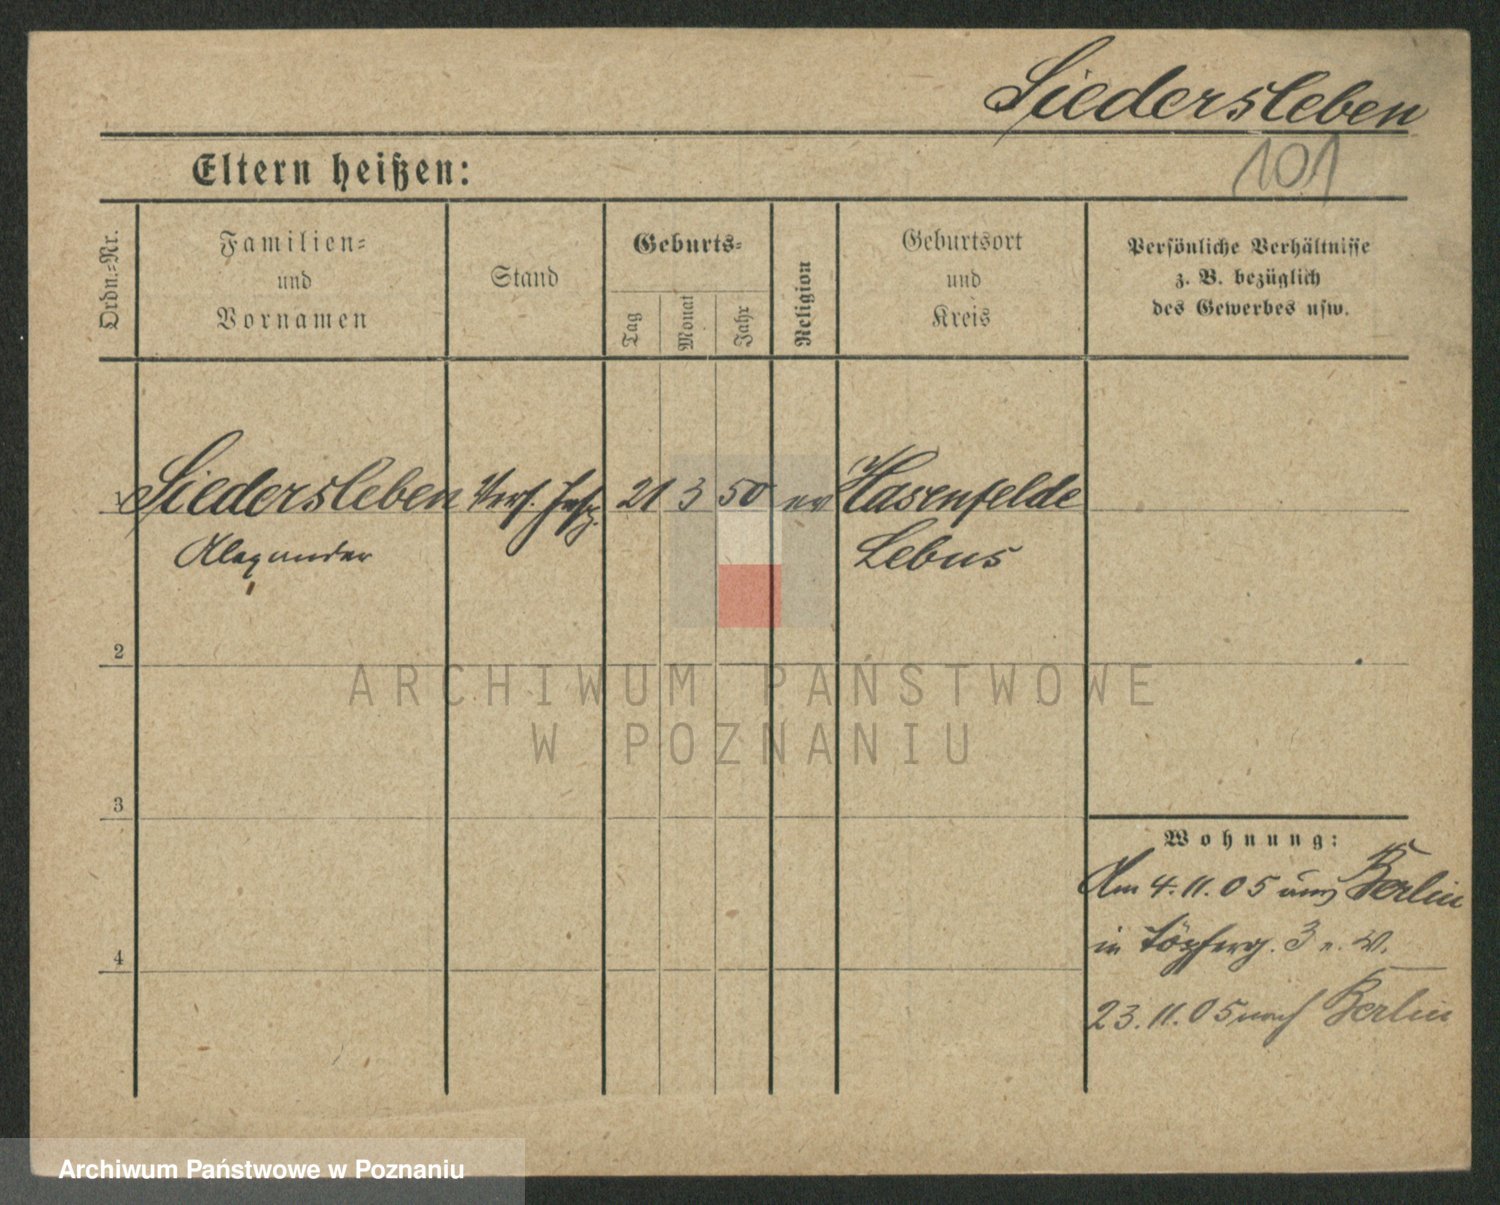 Siedersleben
101
Eltern heißen:
Ordn.=Nr.
Familien=
und
Vornamen
Stand
Geburts=
Tag
Monat
Jahr
Religion
Geburtsort
und
Kreis
Persönliche Verhältnisse
z. B. bezüglich
des Gewerbes usw.
1 Siedersleben Vers. Insp. 21 3 50 ev Hasenfelde
Alexander Lebus
2
ARCHIWUM PAŃSTWOWE
W POZNANIU
3
Wohnung:
Am 4.11.05 aus Berlin
in Töpferg. 3 b. W.
4
23.11.05 nach Berlin
Archiwum Państwowe w Poznaniu